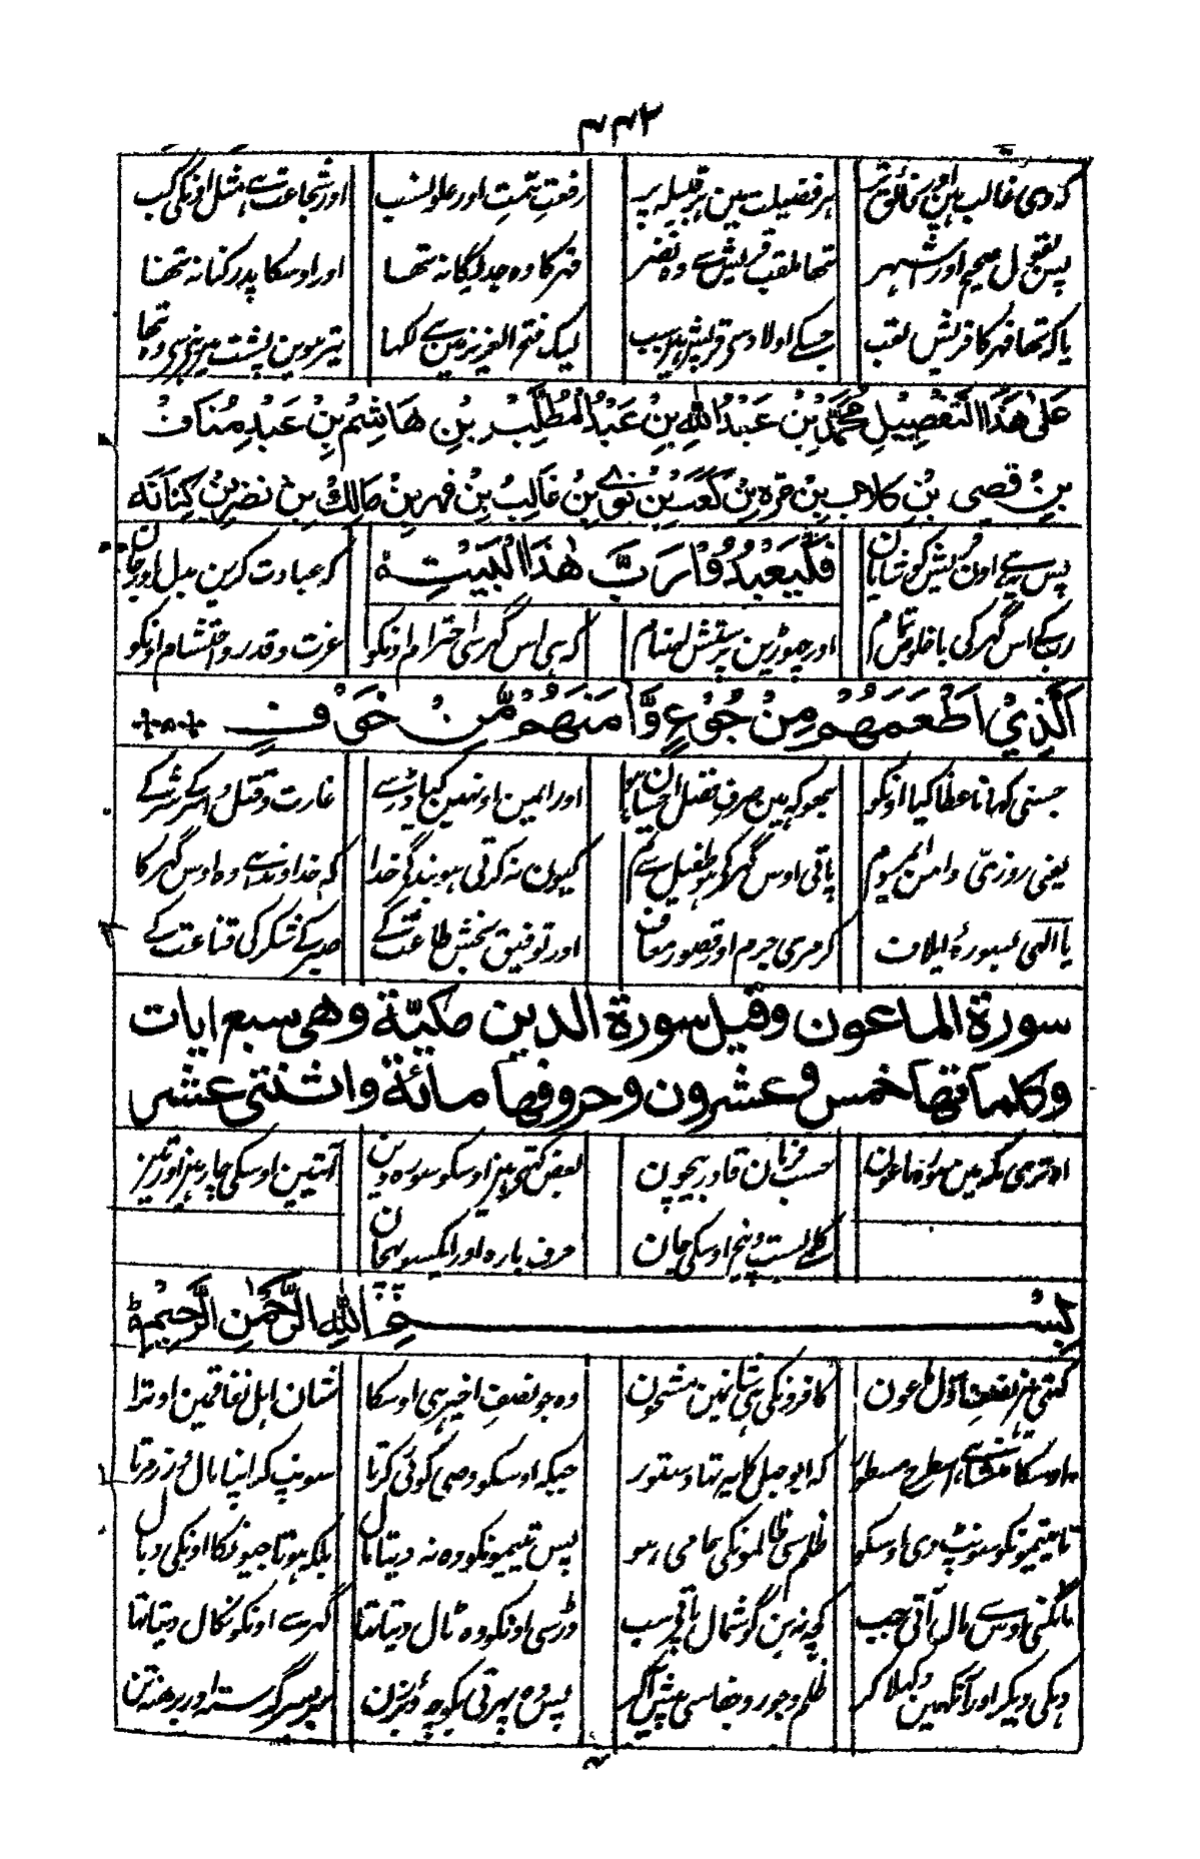 ۲۲۳
که وی غالب ہین اور فائق تر ہر فضیلت مین ہر قبیلہ پر رفعت ہمت اور علو نسب اور شجاعت سے مثل اونکی کب
پس بقول صحیح اور اشہر تھا ملقب قریش سے وہ نضر فہر کا وہ جد یگانہ تھا اور اوسکا پدر کنانہ تھا
یا کہ تھا فہر کا قریش لقب جسکے اولاد سی قریش ہین سب لیک فتح العزیز مین سے لکھا تیرہوین پشت مین نبی سی وہ تھا
عَلیٰ هٰذَا التَّفْصِيْلِ مُحَمَّدُ بْنُ عَبْدُ اللّٰهِ بِنْ عَبْدُ الْمُطَّلِبْ بْنِ هَاشِمُ بِنْ عَبْدِ مُنَافْ
بِنْ قصی بْنِ کلاب بِنْ مرّه بِنْ كَعَبْ بِنْ لوی بِنْ غَالِبْ بِنْ فهر بِنْ مَالِكْ بِنْ نضر بِنْ كِنَانَه
پس ہے اون قریش کو شایان فَلْيَعْبُدُوْا رَبَّ هٰذَا الْبَيْتِ ۵ کہ عبادت کرین بدل اور جان
رب کے اس گھر کی با خلوص تمام اور چھوڑین پرستش اصنام کہ ہی اس گھر سی احترام اونکو عزت و قدر و احتشام اونکو
اَلَّذِيْ اَطْعَمَهُمْ مِنْ جُوْعٍ وَّاٰمَنَهُمْ مِّنْ خَوْفٍ
جسنی کھانا عطا کیا اونکو بھوکھ مین صرف بفضل احسان ہو اور ایمین اونہین کیا ڈر سے غارت و قتل کے شر سے
یعنی روزی و امن ہموم پاتی اوس گھر کے ہو طفیل سے تم کیون نہ کرتی ہو بندگی خدا کہ خداوند ہے وہ اوس گھر کا
یا الٰہی بسورۂ ایلاف کر مری جرم اور قصور معاف اور توفیق بخش طاعت کے صبر کے شکر کی قناعت کے
سورة الماعون وقيل سورة الدين مكيّة وهى سبع ايات
وكلماتها خمس و عشرون وحروفها مائة واثنتى عشر
اوتری مکہ مین سورۂ ماعون حسب فرمان قادر بیچون بعض کہتی ہین اوسکو سورہ دین آیتین اوسکی چار ہین اور تین
کلمے بست و پنج اوسکی جان حرف بارہ اور ایکسو پہچان
بِسْــــمِ اللهِ الرَّحْمٰنِ الرَّحِيْمِ ۵
کہتی ہین نصف اول ماعون کافرونکی ہی شانمین مشحون وہ جو نصف اخیر ہی اوسکا شان اہل نفاقمین اوترا
اوسکا منشا ہے اسطرح مسطور کہ ابو جہل کا یہ تھا دستور جبکہ اوسکو وصی کوئی کرتا سونپ کر اپنا مال و زر مرتا
تا یتیمونکو سونپ دی اوسکو ظلم سی ظالمونکی حامی ہو پس یتیمونکو وہ نہ دیتا مال بلکہ ہوتا جیونکا اونکی وبال
مانگنی اوسے مال آتی جب کچھ نہ بن گوشمال پاتی سب ڈر سی اونکو وہ ٹال دیتا تھا گھر سے اونکو نکال دیتا تھا
دہکی دیکر اور آنکھین دکھلا کر ظلم و جور و جفا سی پیش آکر پس وہ پھرتی بکوچہ و برزن سربسر گرسنہ اور برہنہ تن